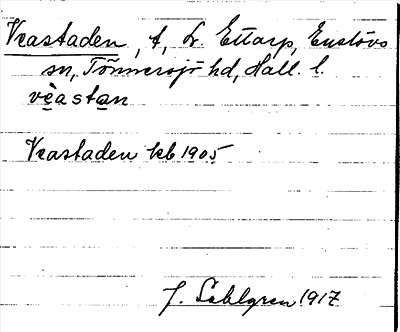 Veastaden, t, L. Ettarp, Enslövs
sn, Tönnersjö hd, Hall. l.
vè̱asta̱n
Veastaden kb 1905
J. Sahlgren 1917